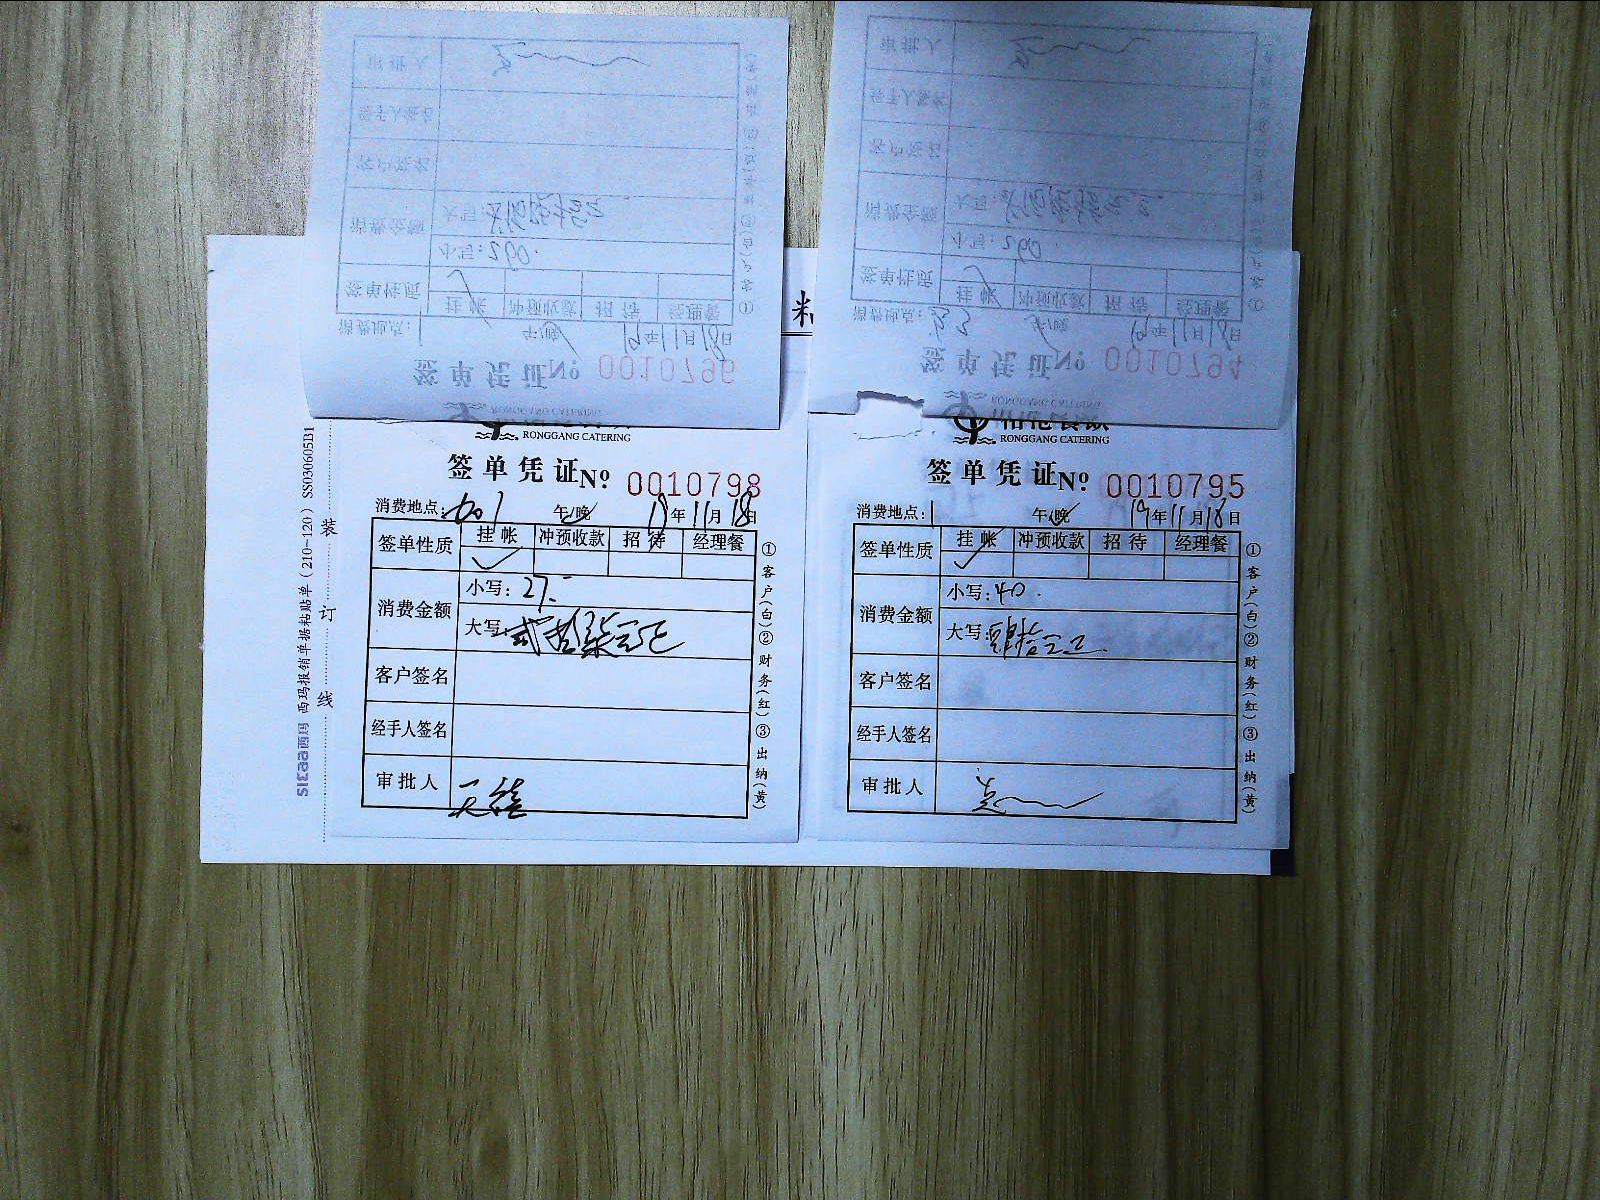 审批人
经手人签名
客户签名
消费金额
大写:
小写: 260.
签单性质
挂帐 冲预收款 招待 经理餐
消费地点: 1 午/晚 19年11月18日
签单凭证№ 0010796
审批人
经手人签名
客户签名
消费金额
大写:
小写: 260.
签单性质
挂帐 冲预收款 招待 经理餐
消费地点: 午/晚 19年11月18日
签单凭证№ 0010794
RONGGANG CATERING
签单凭证№ 0010798
消费地点: 午/晚 19年11月18日
签单性质 挂帐 冲预收款 招待 经理餐
消费金额 小写: 27.-
大写: 贰拾柒元正
客户签名
经手人签名
审批人
①客户(白)②财务(红)③出纳(黄)
RONGGANG CATERING
签单凭证№ 0010795
消费地点: 1 午/晚 19年11月18日
签单性质 挂帐 冲预收款 招待 经理餐
消费金额 小写: 40.
大写: 肆拾元正
客户签名
经手人签名
审批人
①客户(白)②财务(红)③出纳(黄)
西玛 西玛报销单据粘贴单(210-120) SS030605B1
装订线